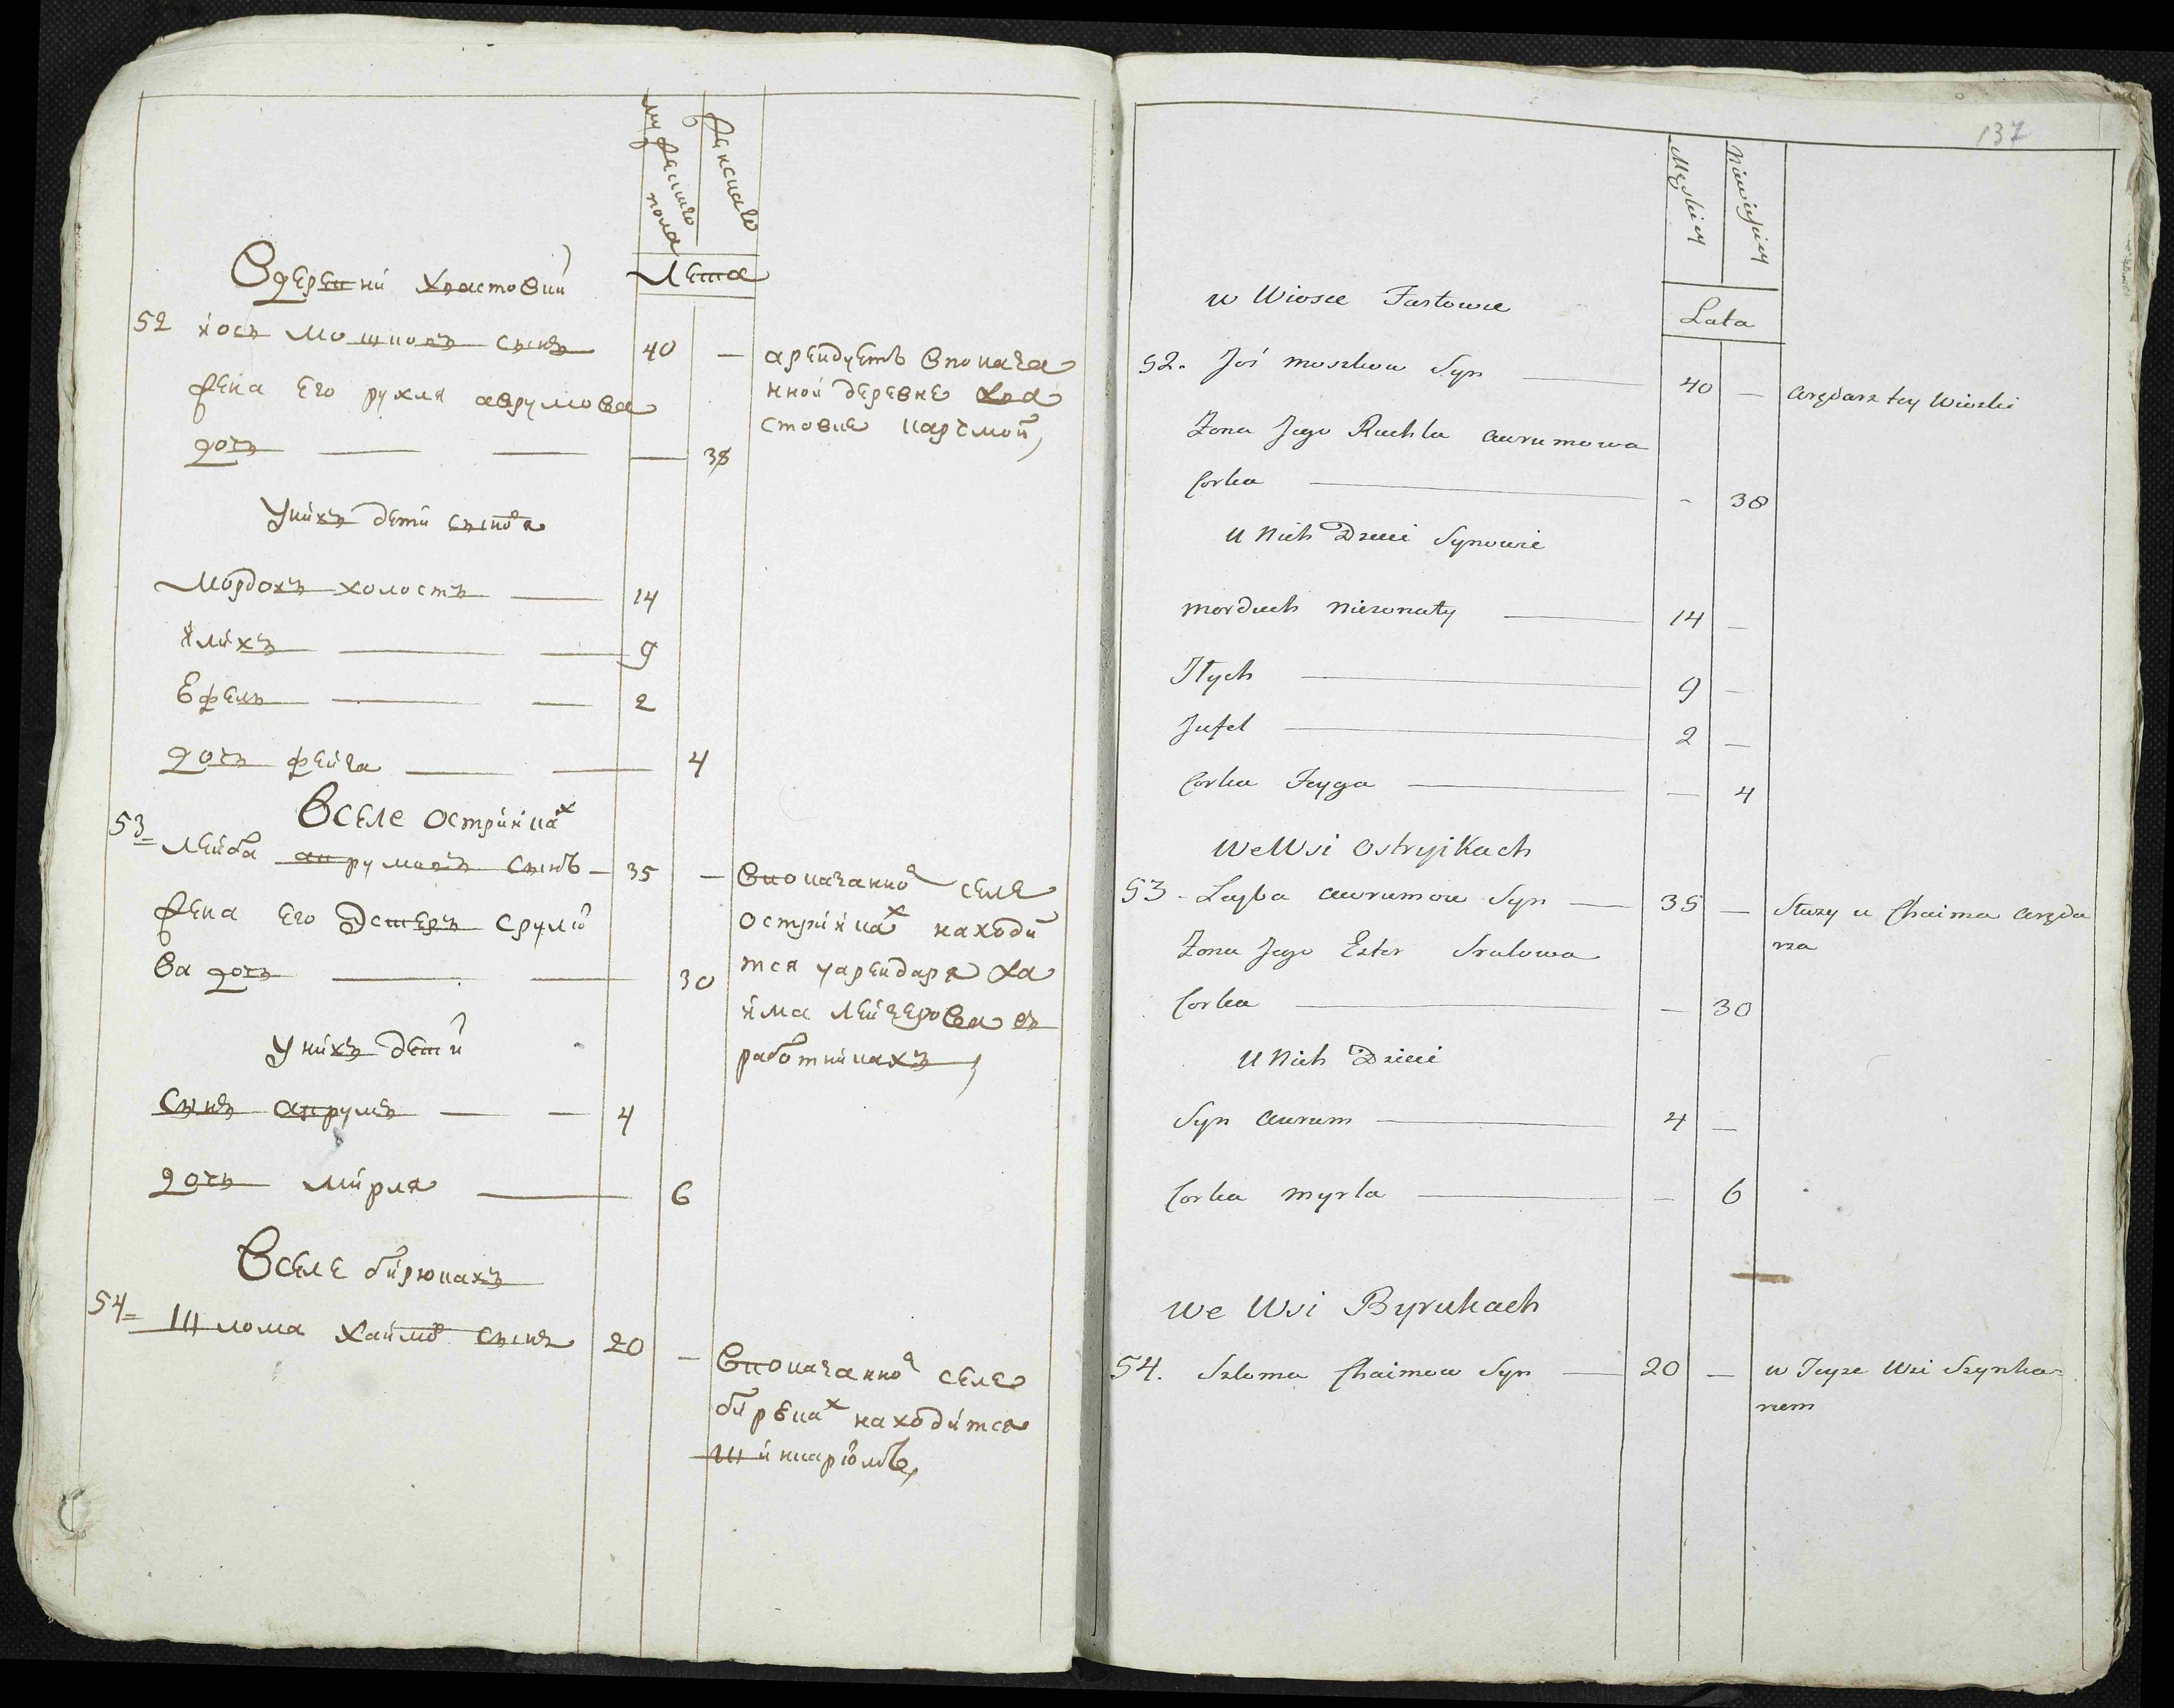 мужеского пола
женскаго
Лета
Вдеревни Хвастовци
52 иось мошковъ сынъ — 40 —
жена его рухля аврумова
дочь — — — 38
арендуетъ впоказа
нной деревне хва
стовце карчмой,
Унихъ дети сыновя
Мордохъ холостъ — 14
илихъ — — 9
Ефель — — 2
дочь фейга — — 4
Вселе острийкахъ
53 Лейба аврумовъ сынъ — 35 —
жена его Эстеръ срулио
ва дочь — — 30
впоказанно селе
острийках находи
тся уарендаря ха
има лейзерова въ
работникахъ,
Унихъ дети
Сынъ аврумъ — — 4
дочь мирля — 6
Вселе бирюкахъ
54 Шлома Хаимо сынъ 20 —
впоказанно селе
бирюках находится
шинкаромъ,
137
Męskiey
Niewieskiey
Lata
w Wiosce Fastowce
52. Joś moszkow Syn — 40 —
arędarz tey Wioski
Zona Jego Ruchla aurumowa
Corka — - 38
u Nich Dzieci Synowie
morduch niezonaty — 14 —
Jłych — 9 —
Jufel — 2 —
Corka Feyga — — 4
We Wsi Ostryikach
53 - Leyba aurumow Syn — 35 —
słuzy u Chaima aręda
rza
Zona Jego Ester Srulowa
Corka — — 30
U Nich Dzieci
Syn aurum — 4 —
Corka myrla — - 6
We Wsi Byrukach
54. Szloma Chaimow Syn — 20 —
w Teyze Wsi Szynka-
rzem